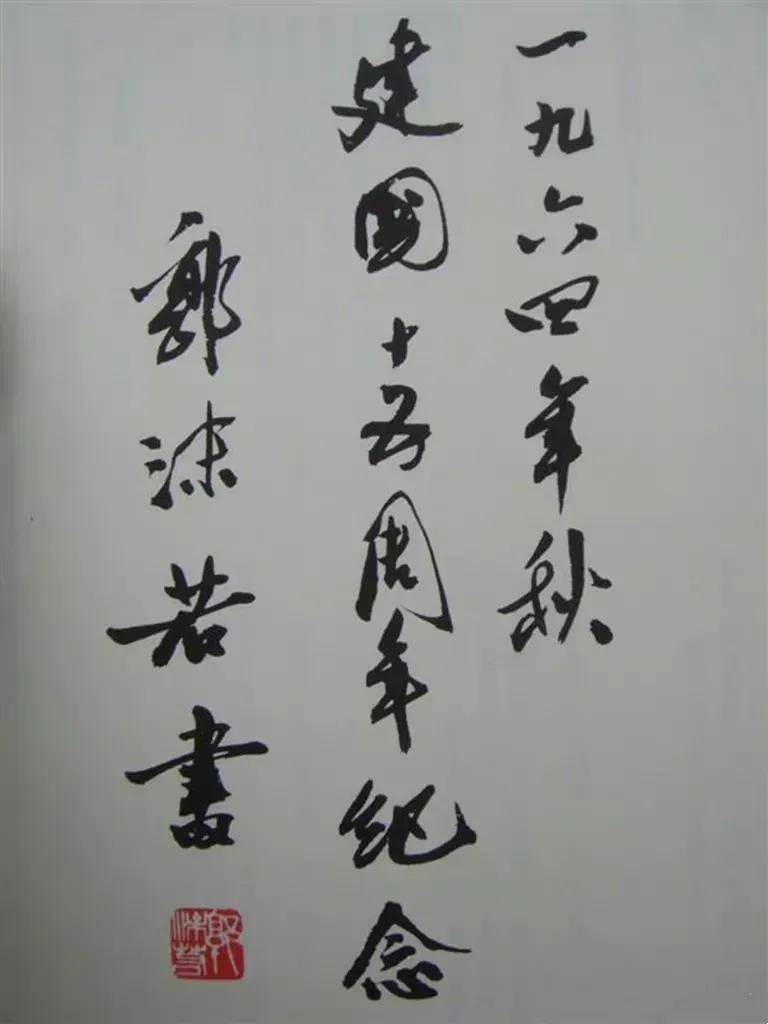 一九六四年秋
建國十五周年纪念
郭沫若書
郭沫若